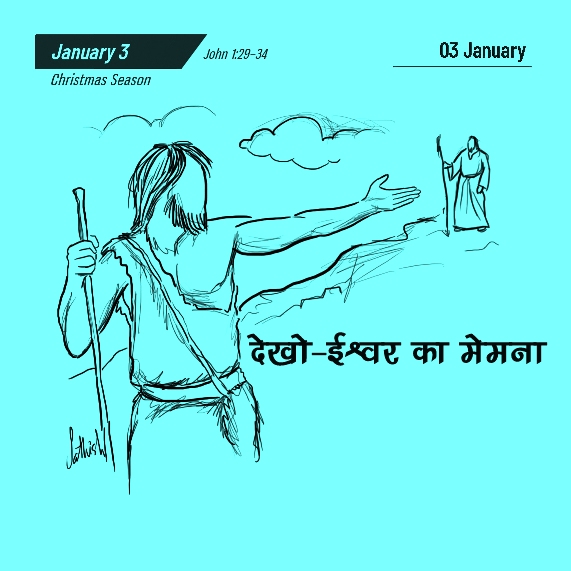 January 3
John 1:29-34
03 January
Christmas Season
देखो-ईश्वर का मेमना